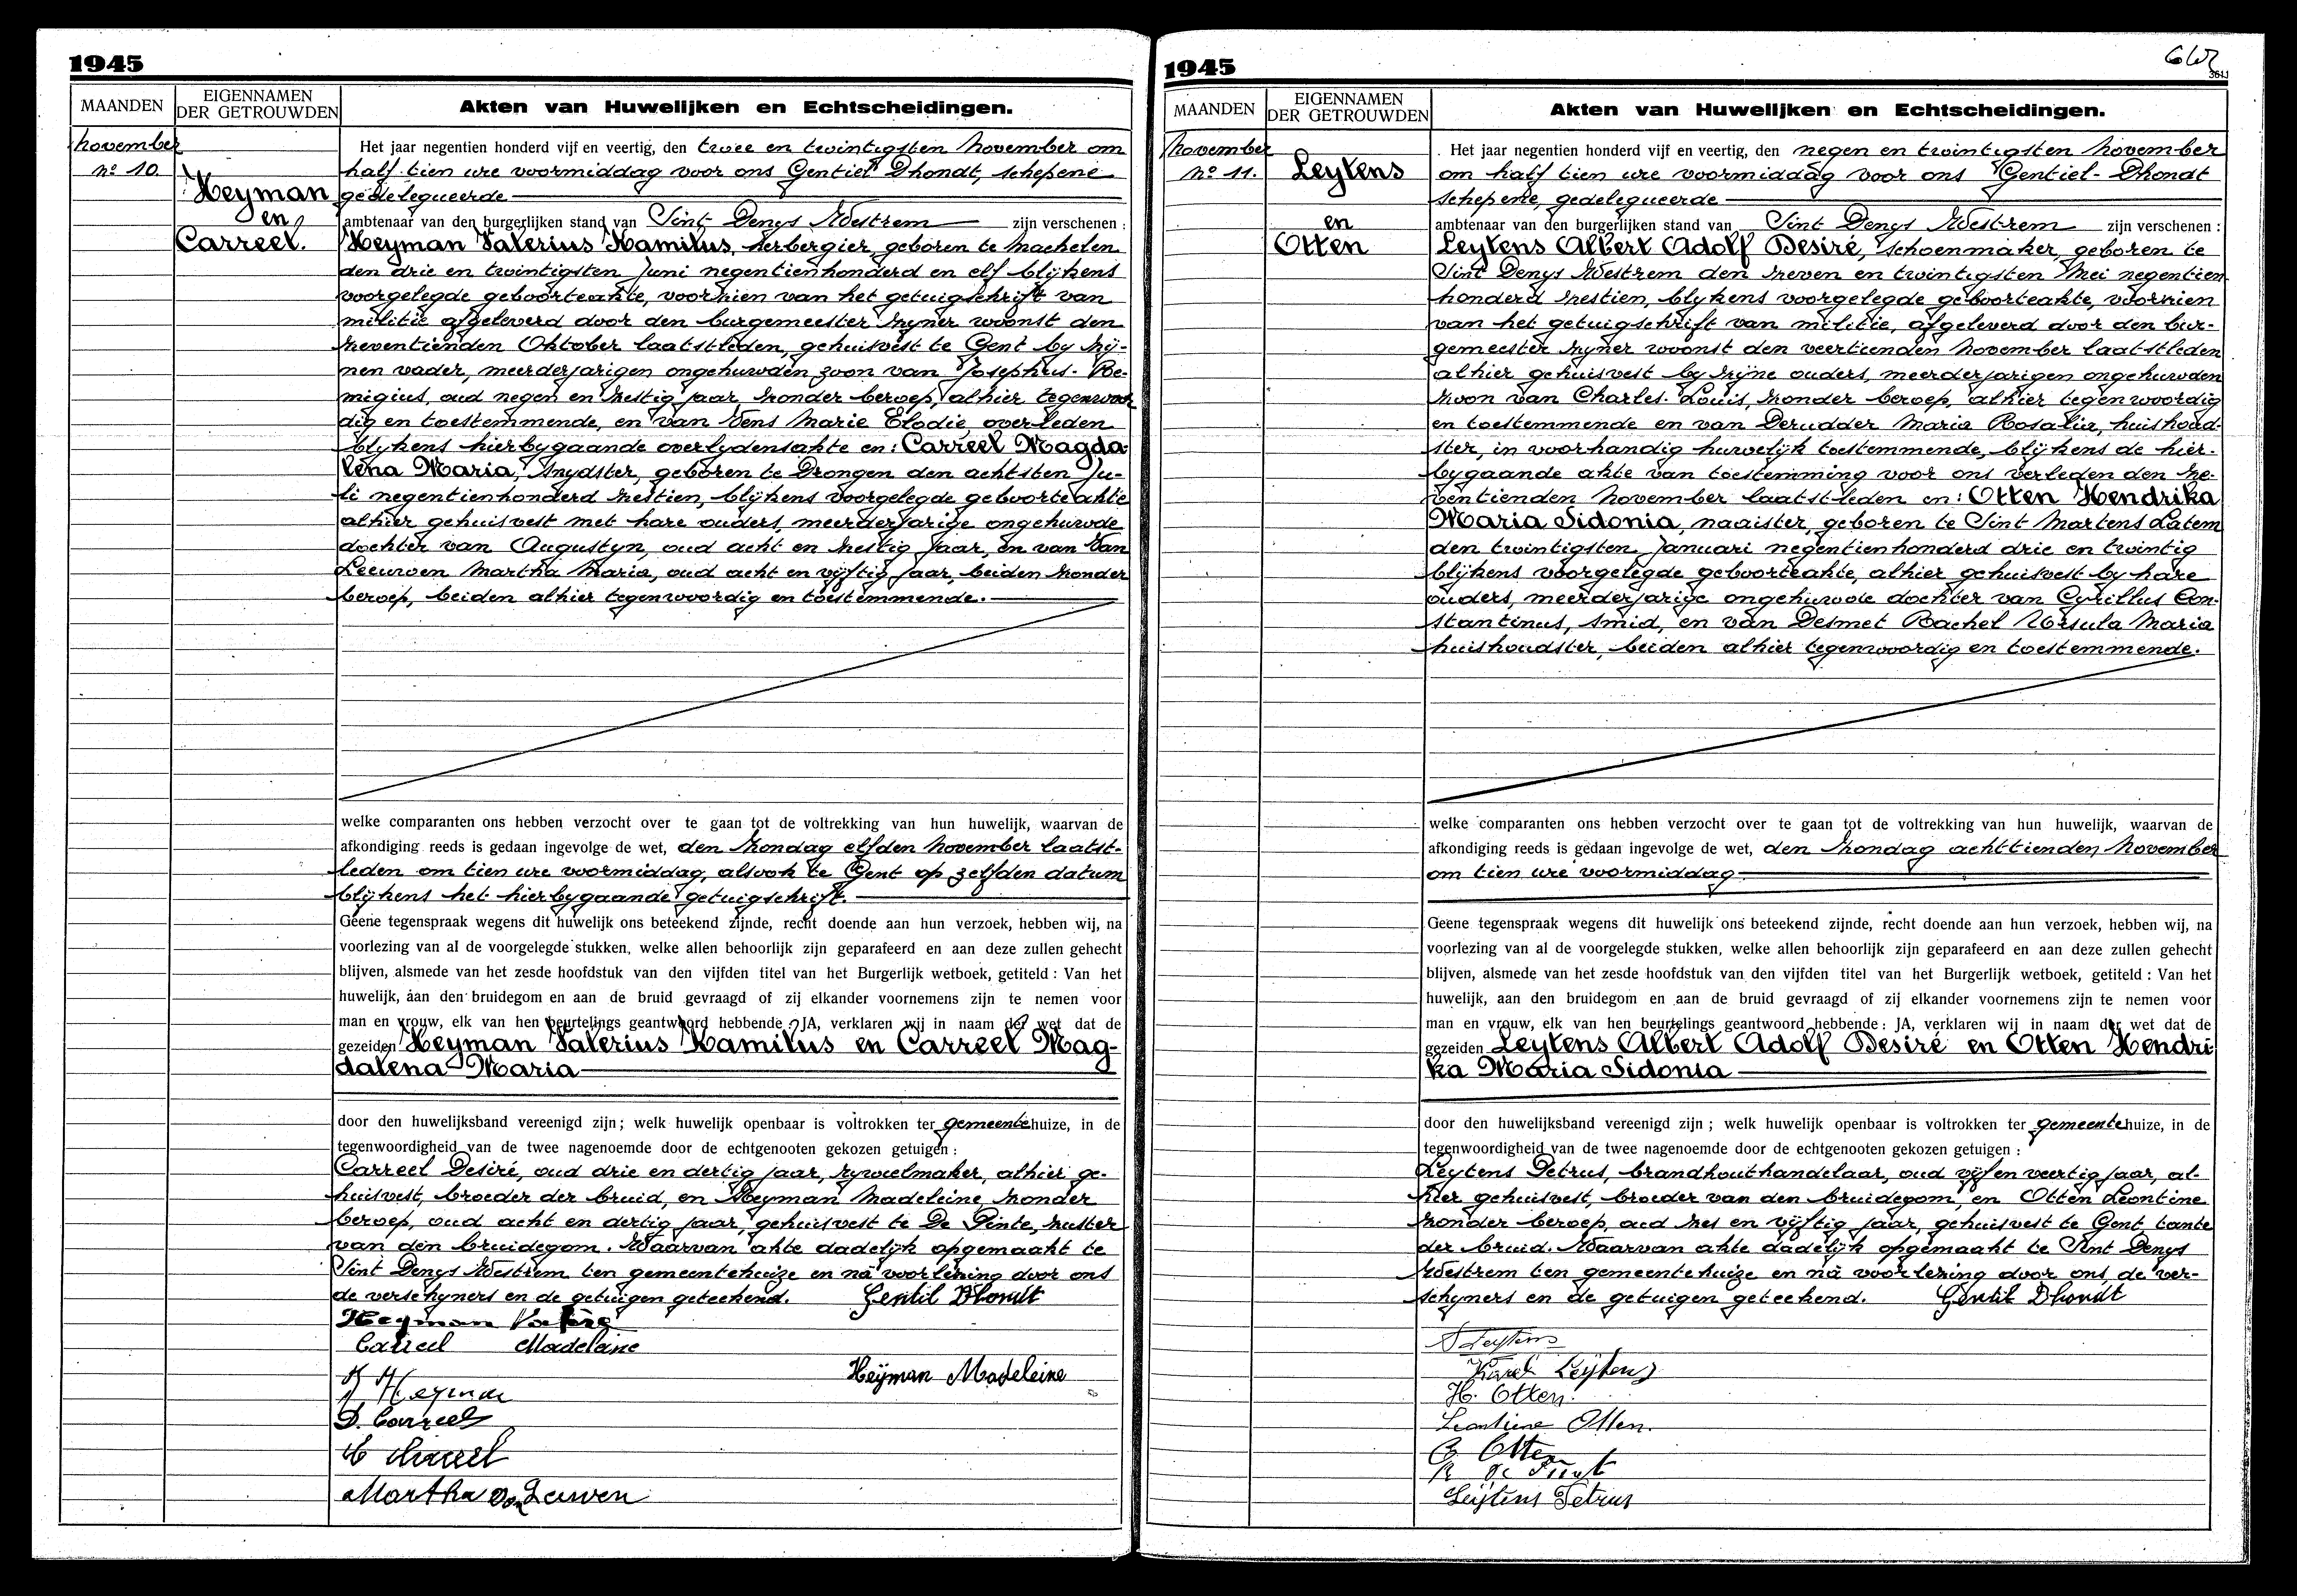 1945
MAANDEN
EIGENNAMEN
DER GETROUWDEN
Akten van Huwelijken en Echtscheidingen.
november
no 10.
Heyman
en
Carreel.
Het jaar negentien honderd vijf en veertig, den twee en twintigsten November om
half tien ure voormiddag voor ons Gentiel Dhondt, schepene
gedelegueerde
ambtenaar van den burgerlijken stand van Sint Denys Westrem zijn verschenen :
Heyman Valerius Kamilus, herbergier, geboren te Machelen
den drie en twintigsten Juni negentienhonderd en elf blijkens
voorgelegde geboorteakte, voorzien van het getuigschrift van
militie afgeleverd door den burgemeester zyner woonst den
zeventienden Oktober laatstleden, gehuisvest te Gent by zij-
nen vader, meerderjarigen ongehuwden zoon van Josephus- Re-
migius, oud negen en zestig jaar, zonder beroep, alhier tegenwoor
dig en toestemmende, en van Wens Marie Elodie, overleden
blykens hierbygaande overlydensakte en: Carreel Magda-
lena Maria, snydster, geboren te Drongen den achtsten Ju-
li negentienhonderd zestien, blijkens voorgelegde geboorteakte
alhier gehuisvest met hare ouders, meerderjarige ongehuwde
dochter van Augustyn, oud acht en zestig jaar, en van Van
Leeuwen Martha Maria, oud acht en vijftig jaar, beiden zonder
beroep, beiden alhier tegenwoordig en toestemmende.
welke comparanten ons hebben verzocht over te gaan tot de voltrekking van hun huwelijk, waarvan de
afkondiging reeds is gedaan ingevolge de wet, den zondag elfden November laatst-
leden om tien ure voormiddag, alsook te Gent op zelfden datum
blijkens het hierbygaande getuigschrift.
Geene tegenspraak wegens dit huwelijk ons beteekend zijnde, recht doende aan hun verzoek, hebben wij, na
voorlezing van al de voorgelegde stukken, welke allen behoorlijk zijn geparafeerd en aan deze zullen gehecht
blijven, alsmede van het zesde hoofdstuk van den vijfden titel van het Burgerlijk wetboek, getiteld : Van het
huwelijk, aan den bruidegom en aan de bruid gevraagd of zij elkander voornemens zijn te nemen voor
man en vrouw, elk van hen beurtelings geantwoord hebbende : JA, verklaren wij in naam der wet dat de
gezeiden Heyman Valerius Kamilus en Carreel Mag-
dalena Maria
door den huwelijksband vereenigd zijn ; welk huwelijk openbaar is voltrokken ter gemeentehuize, in de
tegenwoordigheid van de twee nagenoemde door de echtgenooten gekozen getuigen :
Carreel Desiré, oud drie en dertig jaar, rywielmaker, alhier ge-
huisvest, broeder der bruid, en Heyman Madeleine, zonder
beroep, oud acht en dertig jaar, gehuisvest te De Pinte, zuster
van den bruidegom. Waarvan akte dadelijk opgemaakt te
Sint Denys Westrem ten gemeentehuize en na voorlezing door ons
de verschyners en de getuigen geteekend. Gentil Dhondt
Heyman Valère
Carreel Madeleine
Heÿman Madeleine
Heyman
D. Carreel
Martha Van Leuwen
1945
MAANDEN
EIGENNAMEN
DER GETROUWDEN
Akten van Huwelijken en Echtscheidingen.
november
no 11.
Leytens
en
Otten
Het jaar negentien honderd vijf en veertig, den negen en twintigsten November
om half tien ure voormiddag voor ons Gentiel- Dhondt
schepene, gedelegueerde
ambtenaar van den burgerlijken stand van Sint Denys Westrem zijn verschenen :
Leytens Albert Adolf Desiré, schoenmaker, geboren te
Sint Denys Westrem den zeven en twintigsten Mei negentien
honderd zestien, blykens voorgelegde geboorteakte, voorzien
van het getuigschrift van militie, afgeleverd door den bur-
gemeester zyner woonst den veertienden November laatstleden
alhier gehuisvest by zijne ouders, meerderjarigen ongehuwden
zoon van Charles- Louis, zonder beroep, alhier tegenwoordig
en toestemmende en van Derudder Maria Rosalia, huishoud-
ster, in voorhandig huwelijk toestemmende, blijkens de hier-
bygaande akte van toestemming voor ons verleden den ze-
ventienden November laatstleden en: Otten Hendrika
Maria Sidonia, naaister, geboren te Sint Martens Latem
den twintigsten Januari negentienhonderd drie en twintig
blijkens voorgelegde geboorteakte, alhier gehuisvest by hare
ouders, meerderjarige ongehuwde dochter van Cyrillus Con-
stantinus, smid, en van Desmet Rachel Ursula Maria
huishoudster, beiden alhier tegenwoordig en toestemmende.
welke comparanten ons hebben verzocht over te gaan tot de voltrekking van hun huwelijk, waarvan de
afkondiging reeds is gedaan ingevolge de wet, den zondag achttienden November
om tien ure voormiddag
Geene tegenspraak wegens dit huwelijk ons beteekend zijnde, recht doende aan hun verzoek, hebben wij, na
voorlezing van al de voorgelegde stukken, welke allen behoorlijk zijn geparafeerd en aan deze zullen gehecht
blijven, alsmede van het zesde hoofdstuk van den vijfden titel van het Burgerlijk wetboek, getiteld : Van het
huwelijk, aan den bruidegom en aan de bruid gevraagd of zij elkander voornemens zijn te nemen voor
man en vrouw, elk van hen beurtelings geantwoord hebbende : JA, verklaren wij in naam der wet dat de
gezeiden Leytens Albert Adolf Desiré en Otten Hendri
ka Maria Sidonia
door den huwelijksband vereenigd zijn ; welk huwelijk openbaar is voltrokken ter gemeentehuize, in de
tegenwoordigheid van de twee nagenoemde door de echtgenooten gekozen getuigen :
Leytens Petrus, brandhouthandelaar, oud vijf en veertig jaar, al-
hier gehuisvest, broeder van den bruidegom, en Otten Leontine
zonder beroep, oud zes en vijftig jaar, gehuisvest te Gent, tante
der bruid. Waarvan akte dadelijk opgemaakt te Sint Denys
Westrem ten gemeentehuize en na voorlezing door ons, de ver-
schyners en de getuigen geteekend. Gentil Dhondt
A Leytens
Karel Leÿtens
H. Otten.
Leontine Otten.
Otten
Leÿtens Petrus